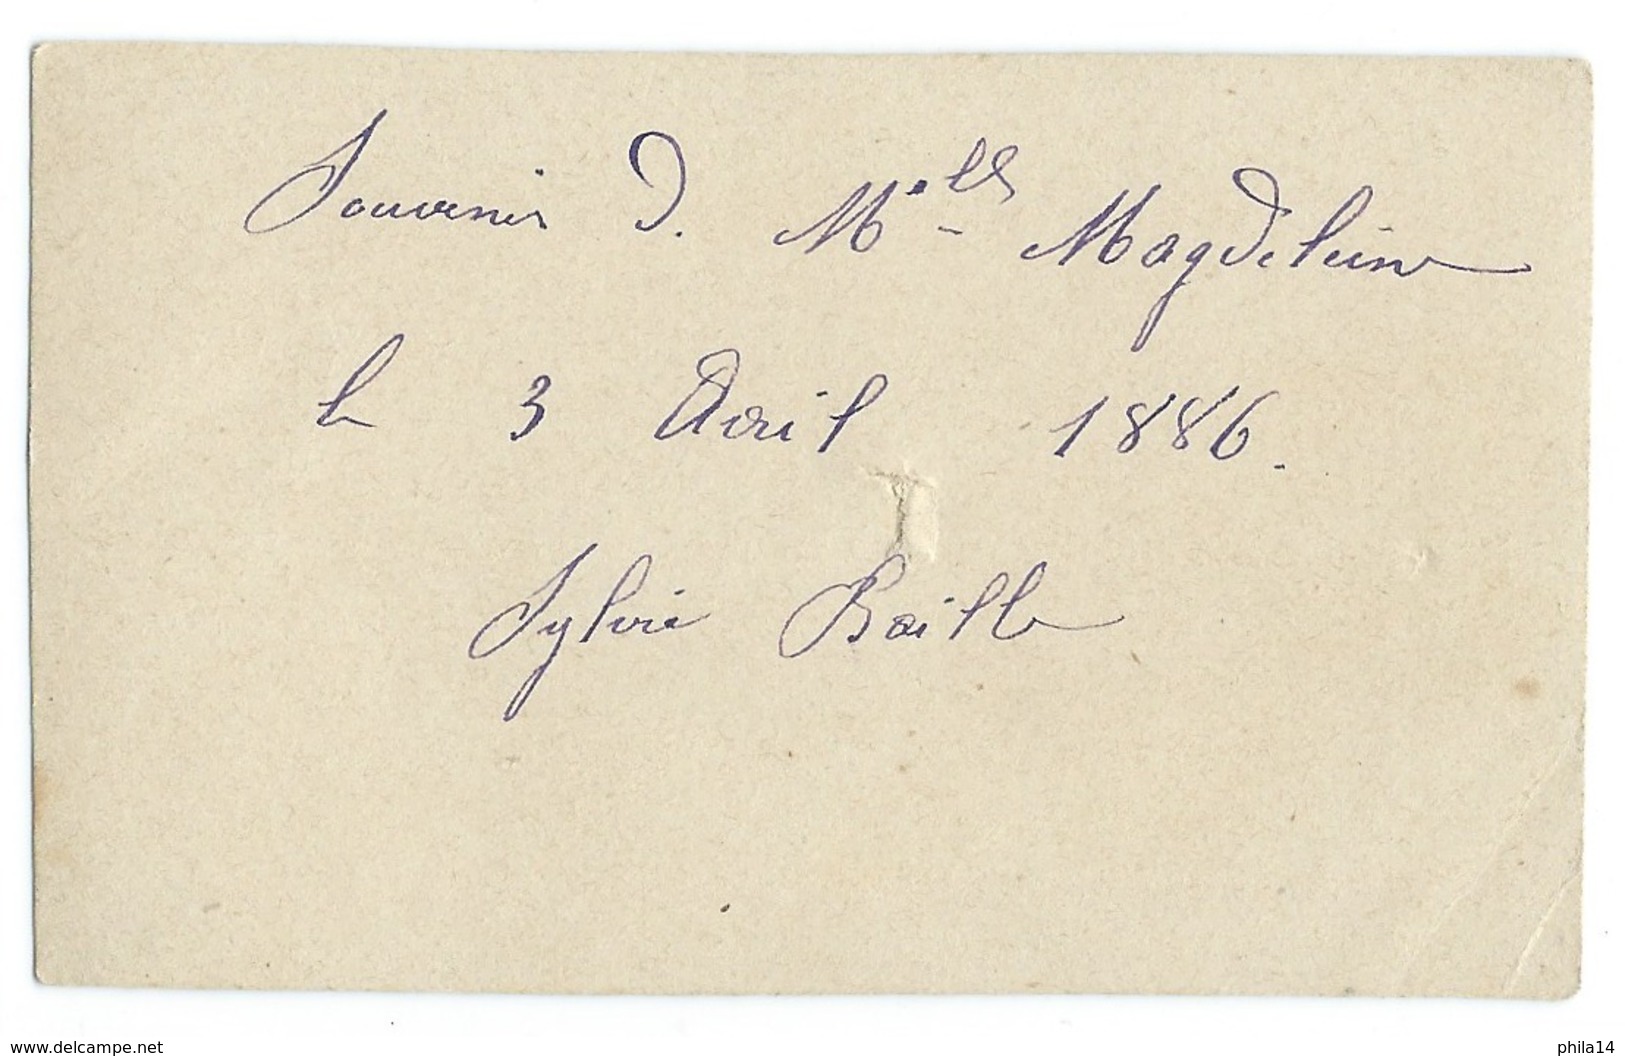 Souvenir d. Melle Magdeleine
le 3 Avril 1886.
Sylvie Baille
www.delcampe.net
phila14